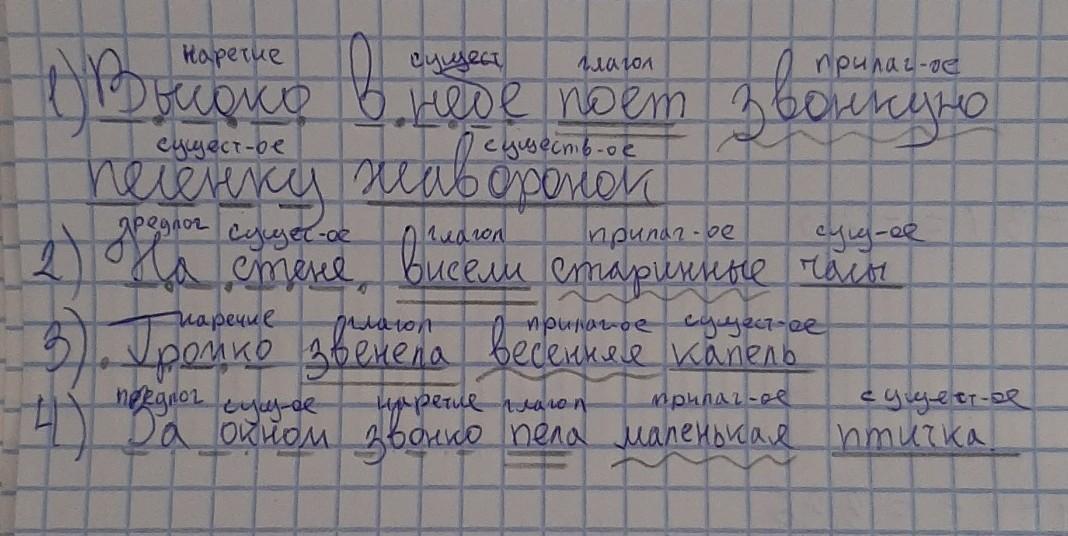 наречие сущест глагол прилаг-ое
1) Высоко в небе поет звонкую
сущест-ое существ-ое
песенку жаворонок
предлог сущес-ое глагол прилаг-ое сущ-ое
2) На стене висели старинные часы
наречие глагол прилаг-ое сущест-ое
3) Громко звенела весенняя капель
предлог сущ-ое наречие глагол прилаг-ое сущест-ое
4) За окном звонко пела маленькая птичка.